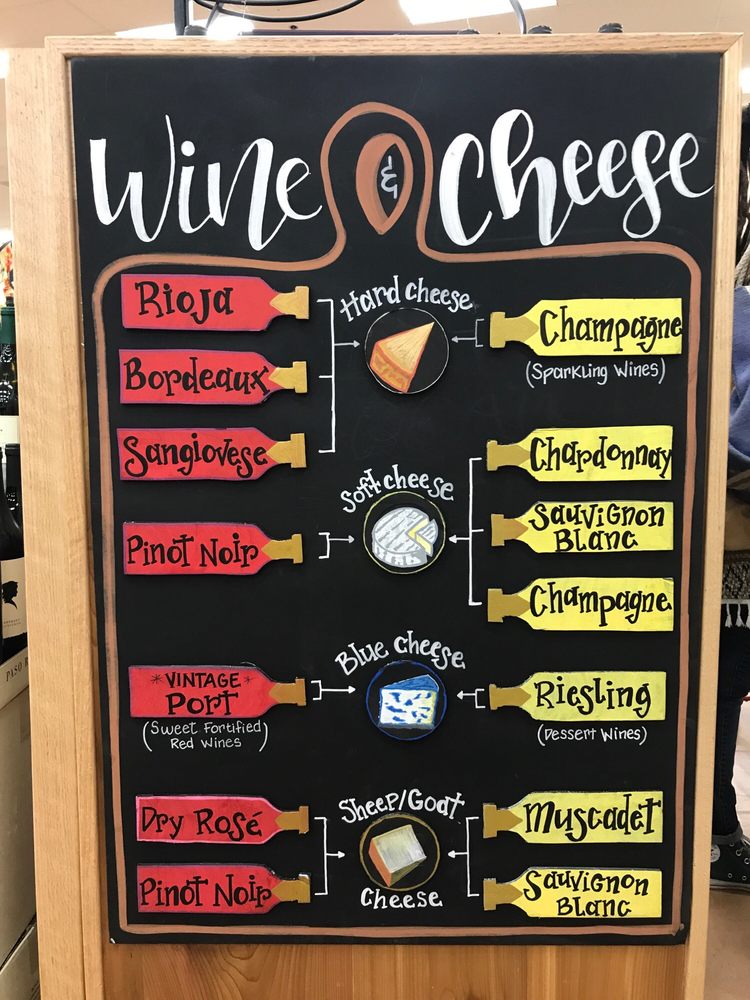 Wine & Cheese
Rioja
Bordeaux
Sangiovese
Hard cheese
Champagne
(Sparkling Wines)
Pinot Noir
Soft cheese
Chardonnay
Sauvignon
Blanc
Champagne
*VINTAGE*
Port
(Sweet Fortified
Red Wines)
Blue cheese
Riesling
(Dessert Wines)
Dry Rosé
Pinot Noir
Sheep/Goat
Cheese
Muscadet
Sauvignon
Blanc